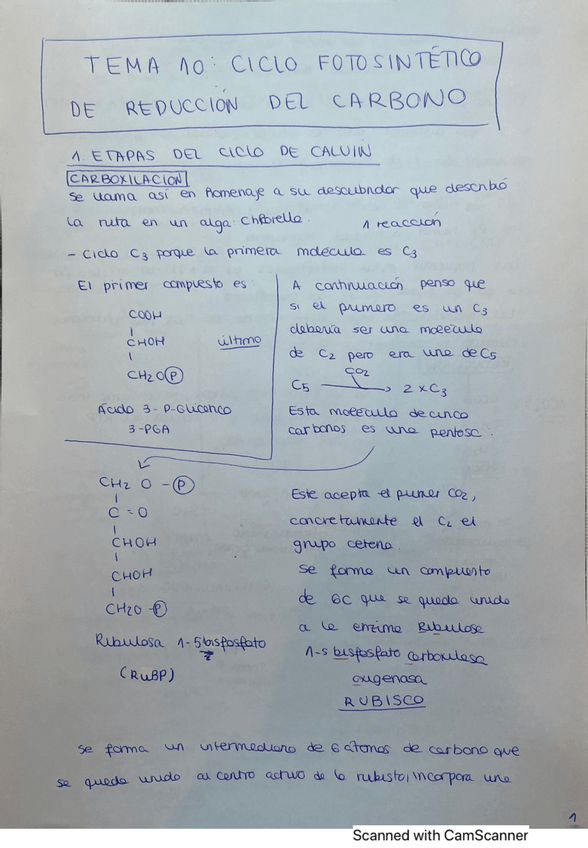 TEMA 10: CICLO FOTOSINTÉTICO
DE REDUCCIÓN DEL CARBONO
1. ETAPAS DEL CICLO DE CALVIN
CARBOXILACION
Se llama así en homenaje a su descubridor que describió
la ruta en un alga chlorella.
1 reacción
- Ciclo C3 porque la primera molécula es C3
El primer compuesto es:
COOH
CHOH
último
CH2O P
Ácido 3-P-Glicerico
3-PGA
A continuación penso que
si el primero es un C3
debería ser una molécula
de C2 pero era una de C5
CO2
C5 → 2 x C3
Esta molécula de cinco
carbonos es una pentosa.
CH2 O - P
C = O
CHOH
CHOH
CH2O - P
Ribulosa 1-5 bisfosfato
(RuBP)
Este acepta el primer CO2,
concretamente el C2 el
grupo cetona.
Se forma un compuesto
de 6C que se queda unido
a la enzima Ribulosa
1-5 bisfosfato carboxilasa
oxigenasa
RUBISCO
Se forma un intermediario de 6 átomos de carbono que
se queda unido al centro activo de la rubisto, incorpora una
1
Scanned with CamScanner